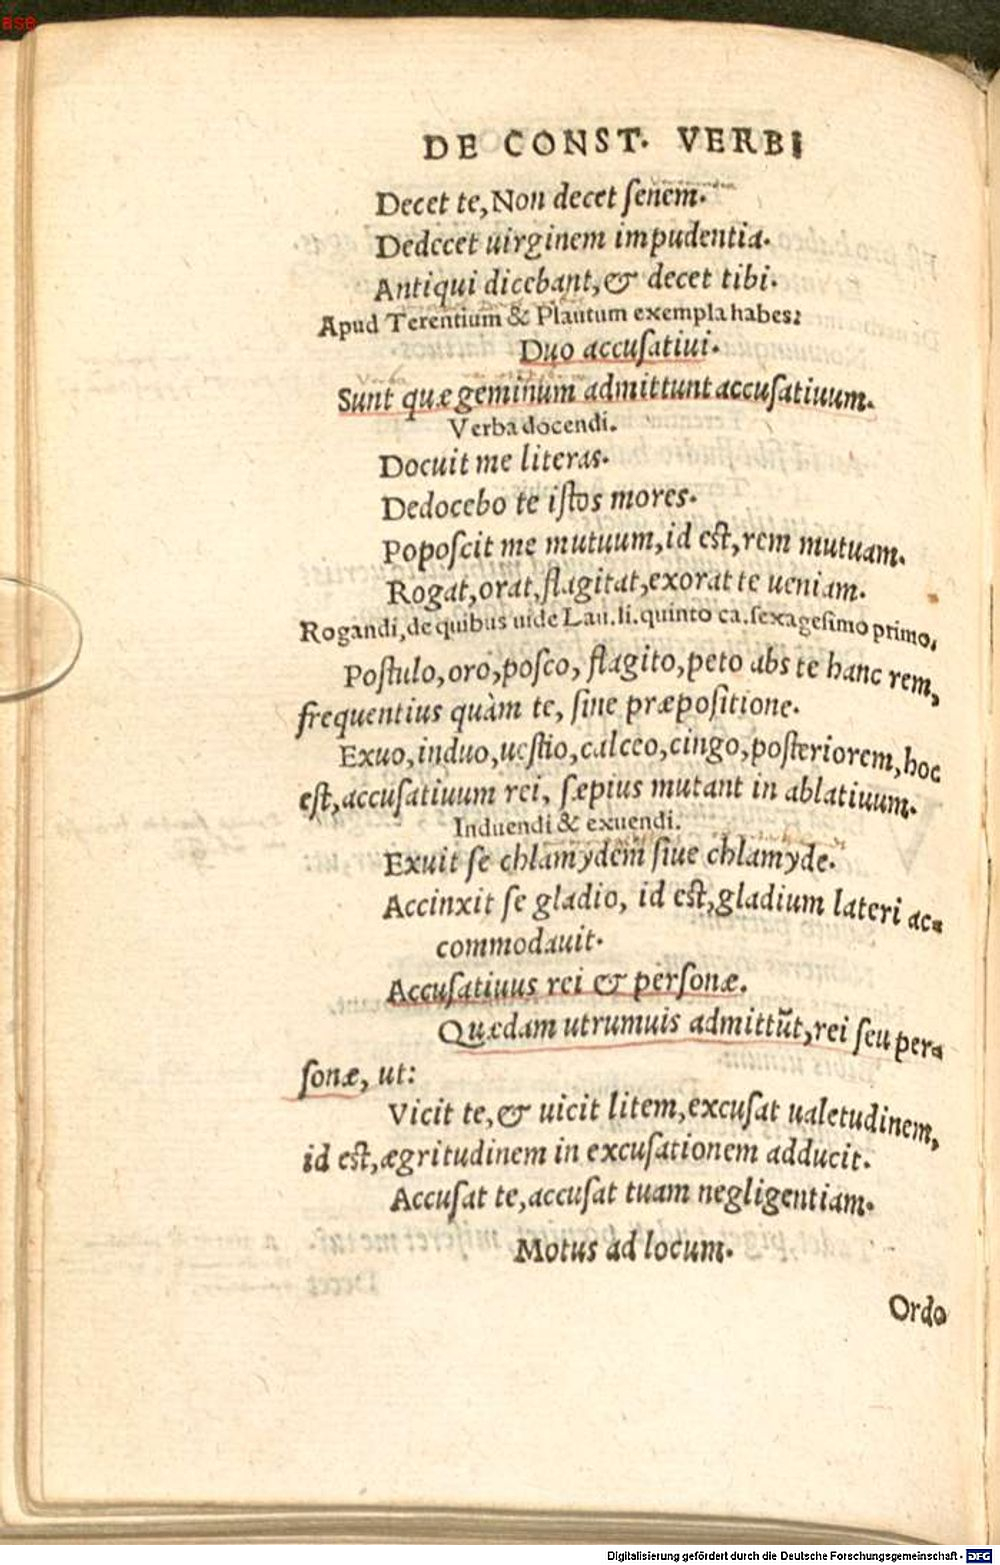 ase
DE CONST. VERBI
Decet te, Non decet ſenem.
Dedecet uirginem impudentia.
Antiqui dicebant, & decet tibi.
Apud Terentium & Plautum exempla habes:
Duo accuſatiui.
Sunt quæ geminum admittunt accuſatiuum.
Verba docendi.
Docuit me literas.
Dedocebo te iſtos mores.
Popoſcit me mutuum, id eſt, rem mutuam.
Rogat, orat, flagitat, exorat te ueniam.
Rogandi, de quibus uide Lau. li. quinto ca. ſexageſimo primo,
Poſtulo, oro, poſco, flagito, peto abs te hanc rem,
frequentius quàm te, ſine præpoſitione.
Exuo, induo, ueſtio, calceo, cingo, poſteriorem, hoc
eſt, accuſatiuum rei, ſæpius mutant in ablatiuum.
Induendi & exuendi.
Exuit ſe chlamydem ſiue chlamyde.
Accinxit ſe gladio, id eſt, gladium lateri ac=
commodauit.
Accuſatiuus rei & perſonæ.
Quædam utrumuis admittũt, rei ſeu per=
ſonæ, ut:
Vicit te, & uicit litem, excuſat ualetudinem,
id eſt, ægritudinem in excuſationem adducit.
Accuſat te, accuſat tuam negligentiam.
Motus ad locum.
Ordo
Digitalisierung gefördert durch die Deutsche Forschungsgemeinschaft - DFG